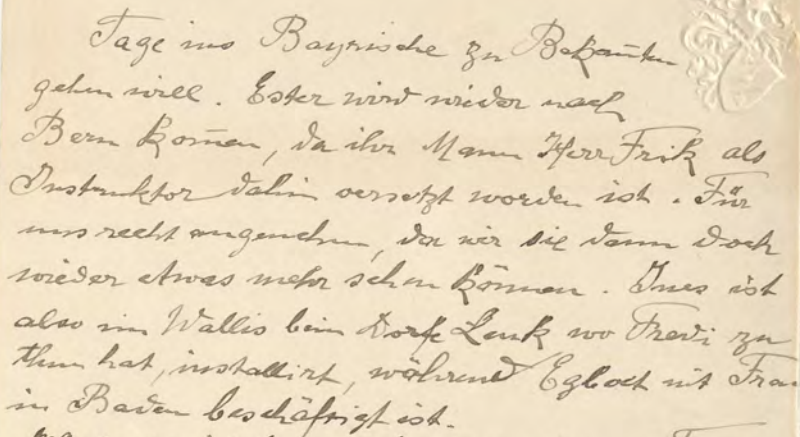 Tage ins Bayrische zu Bekan̄ten
gehen will. Ester wird wieder nach
Bern kom̄en, da ihr Mann Herr Frik als
Instruktor dahin versetzt worden ist. Für
uns recht angenehm, da wir sie dann doch
wieder etwas mehr sehen können. Ines ist
also im Wallis beim Dorfe Leuk wo Fredi zu
thun hat, installirt, während Egbert mit Frau
in Baden beschäftigt ist.